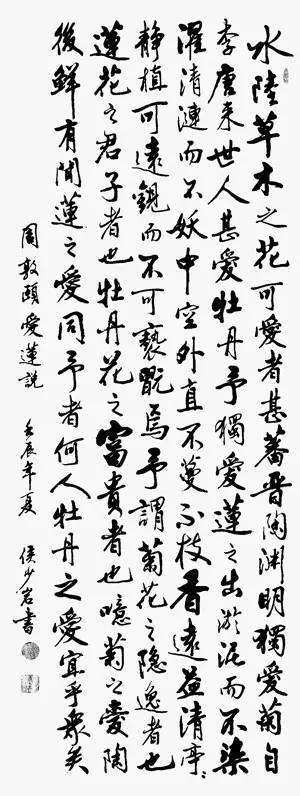 水陸草木之花可愛者甚蕃晉陶渊明獨愛菊自
李唐来世人甚愛牡丹予獨愛蓮之出淤泥而不染
濯清漣而不妖中空外直不蔓不枝香遠益清亭〻
静植可遠觀而不可褻翫焉予謂菊花之隐逸者也
蓮花之君子者也牡丹花之富貴者也噫菊之愛陶
後鮮有聞蓮之愛同予者何人牡丹之愛宜乎衆矣
周敦頤愛蓮説 壬辰年夏 侯少岩書